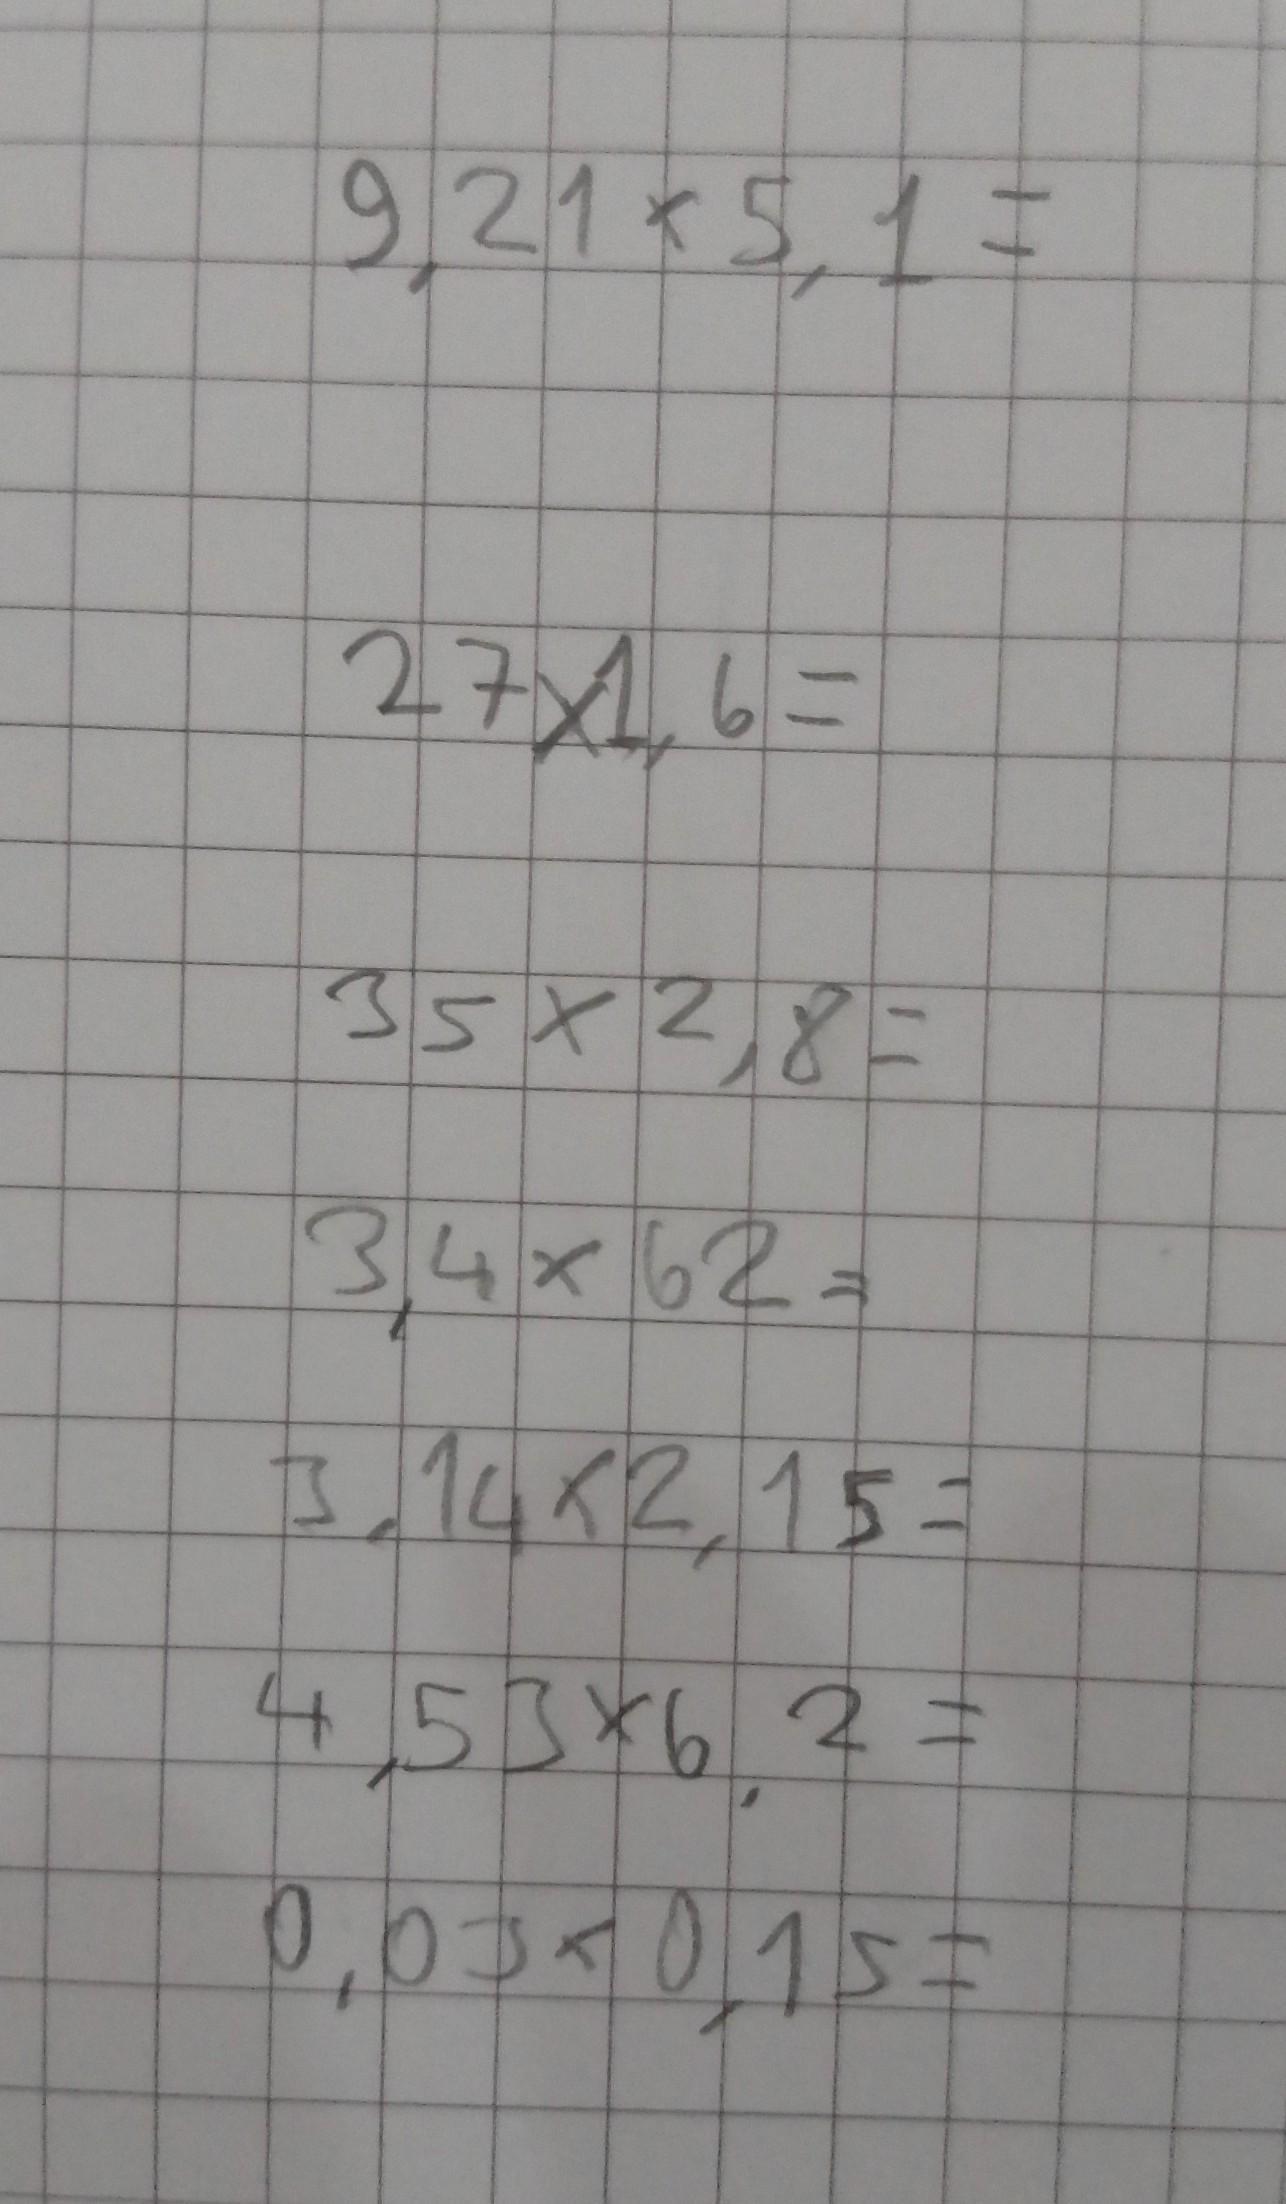 9,21×5,1=
27×1,6=
35×2,8=
3,4×62=
3,14×2,15=
4,53×6,2=
0,03×0,15=